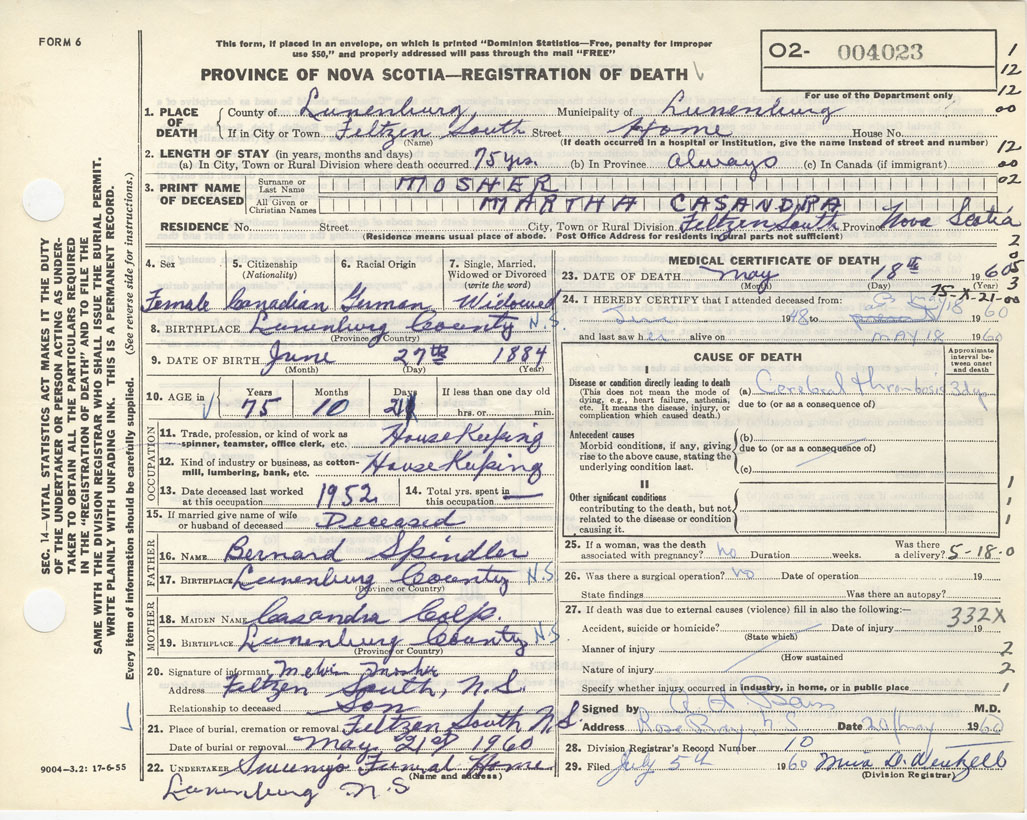 FORM 6
This form, if placed in an envelope, on which is printed "Dominion Statistics—Free, penalty for improper
use $50," and properly addressed will pass through the mail "FREE"
PROVINCE OF NOVA SCOTIA—REGISTRATION OF DEATH
O2- 004023
For use of the Department only
1. PLACE OF DEATH
County of Lunenburg Municipality of Lunenburg
If in City or Town Feltzen South Street Home House No.
(Name) (If death occurred in a hospital or institution, give the name instead of street and number)
2. LENGTH OF STAY (in years, months and days)
(a) In City, Town or Rural Division where death occurred 75 yrs. (b) In Province always (c) In Canada (if immigrant)
3. PRINT NAME OF DECEASED
Surname or Last Name MOSHER
All Given or Christian Names MARTHA CASANDRA
RESIDENCE No. Street City, Town or Rural Division Feltzen South Province Nova Scotia
(Residence means usual place of abode. Post Office Address for residents in rural parts not sufficient)
4. Sex Female
5. Citizenship (Nationality) Canadian
6. Racial Origin German
7. Single, Married, Widowed or Divorced (write the word) Widowed
8. BIRTHPLACE Lunenburg County N.S.
(Province or County)
9. DATE OF BIRTH June 27th 1884
(Month) (Day) (Year)
10. AGE in Years 75 Months 10 Days 21 If less than one day old hrs. or min.
OCCUPATION
11. Trade, profession, or kind of work as spinner, teamster, office clerk, etc. House Keeping
12. Kind of industry or business, as cotton-mill, lumbering, bank, etc. House Keeping
13. Date deceased last worked at this occupation 1952
14. Total yrs. spent in this occupation —
15. If married give name of wife or husband of deceased Deceased
FATHER
16. NAME Bernard Spindler
17. BIRTHPLACE Lunenburg County N.S.
(Province or County)
MOTHER
18. MAIDEN NAME Casandra Colp.
19. BIRTHPLACE Lunenburg County N.S
(Province or County)
20. Signature of informant Melvin Mosher
Address Feltzen South, N.S.
Relationship to deceased Son
21. Place of burial, cremation or removal Feltzen South N.S.
Date of burial or removal May 21st 1960
22. UNDERTAKER Sweeny's Funeral Home
(Name and address)
Lunenburg N.S
9004—3.2: 17-6-55
SEC. 14—VITAL STATISTICS ACT MAKES IT THE DUTY
OF THE UNDERTAKER OR PERSON ACTING AS UNDER-
TAKER TO OBTAIN ALL THE PARTICULARS REQUIRED
IN THE "REGISTRATION OF DEATH" AND FILE THE
SAME WITH THE DIVISION REGISTRAR WHO SHALL ISSUE THE BURIAL PERMIT.
WRITE PLAINLY WITH UNFADING INK. THIS IS A PERMANENT RECORD.
Every item of information should be carefully supplied. (See reverse side for instructions.)
MEDICAL CERTIFICATE OF DEATH
23. DATE OF DEATH May 18th 1960
(Month) (Day) (Year)
75-X-21-00
24. I HEREBY CERTIFY that I attended deceased from:
1948 to 1960
and last saw her alive on MAY 18 1960
CAUSE OF DEATH
Approximate interval between onset and death
I
Disease or condition directly leading to death
(This does not mean the mode of dying, e.g., heart failure, asthenia, etc. It means the disease, injury, or complication which caused death.)
(a) Cerebral thrombosis 3 dys
due to (or as a consequence of)
Antecedent causes
Morbid conditions, if any, giving rise to the above cause, stating the underlying condition last.
(b)
due to (or as a consequence of)
(c)
II
Other significant conditions
contributing to the death, but not related to the disease or condition causing it.
25. If a woman, was the death associated with pregnancy? no Duration weeks. Was there a delivery? 5-18-0
26. Was there a surgical operation? no Date of operation 19
State findings Was there an autopsy?
27. If death was due to external causes (violence) fill in also the following:—
332X
Accident, suicide or homicide? Date of injury 19
(State which)
Manner of injury 2
(How sustained
Nature of injury 2
Specify whether injury occurred in industry, in home, or in public place 1
Signed by M.D.
Address Rose Bay N.S Date 20 May 1960
28. Division Registrar's Record Number 10
29. Filed July 5th 1960
(Division Registrar)
1
12
12
00
12
00
02
2
0
05
3
1
1
1